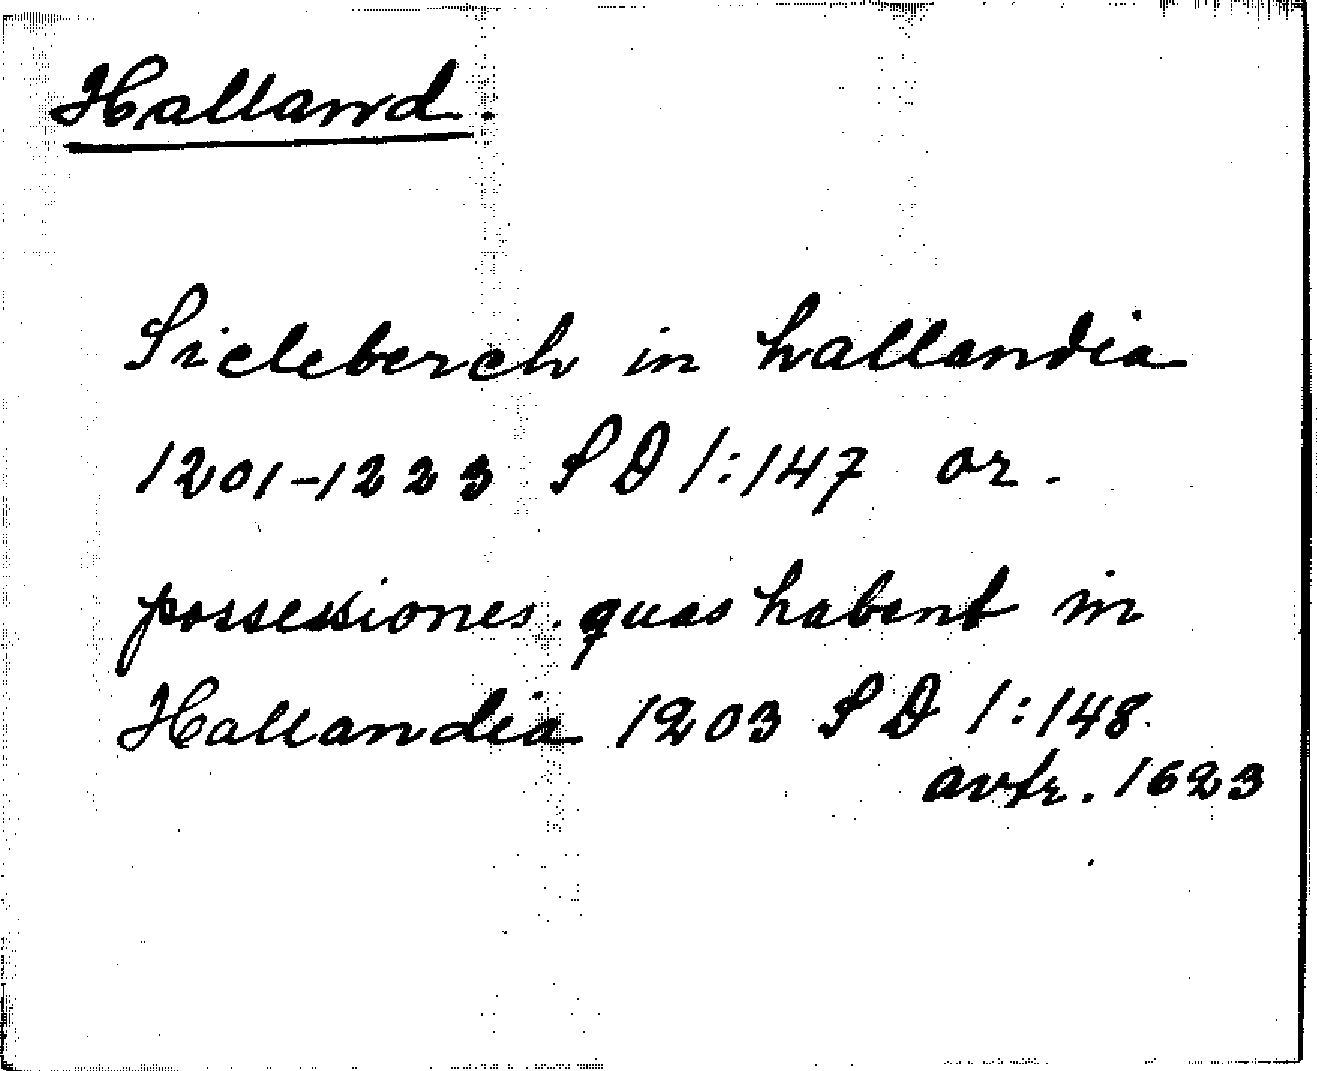 Halland.
Sicleberch in hallandia
1201-1223 SD 1:147 or.
possessiones. quas habent in
Hallandia 1203 SD 1:148.
avskr. 1623